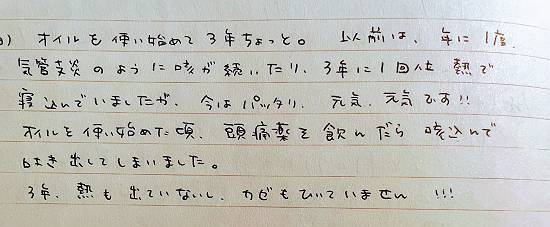 ) オイルを使い始めて3年ちょっと。 以前は、年に1度、
気管支炎のように咳が続いたり、3年に1回位 熱で
寝込んでいましたが、今はパッタリ。 元気、元気です!!
オイルを使い始めた頃、頭痛薬を飲んだら 咳込んで
吐き出してしまいました。
3年、熱も出ていないし、カゼもひいていません !!!